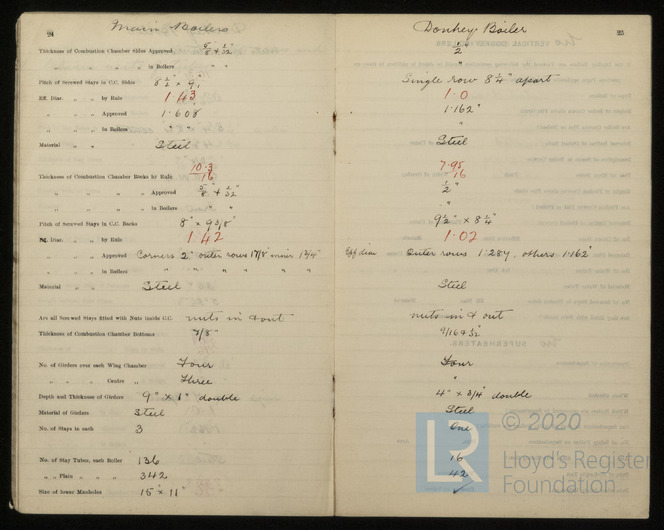 24
Main Boilers
Thickness of Combustion Chamber Sides Approved 5/8 & 1/32"
" " " in Boilers " "
Pitch of Screwed Stays in C.C. Sides 8 1/2" × 9"
Eff. Diar. " " by Rule 1.43
" " " Approved 1.608
" " " in Boilers "
Material " " Steel
Thickness of Combustion Chamber Backs by Rule 10.3/16
" " " Approved 5/8" & 1/32
" " " in Boilers " "
Pitch of Screwed Stays in C.C. Backs 8" × 9 3/8"
Eff. Diar. " " by Rule 1.42
" " " Approved Corners 2" outer rows 1 7/8" inner 1 3/4"
" " " in Boilers " " " " " "
Material " " Steel
Are all Screwed Stays fitted with Nuts inside C.C. nuts in & out
Thickness of Combustion Chamber Bottoms 7/8"
No. of Girders over each Wing Chamber Four
" " " Centre " Three
Depth and Thickness of Girders 9" × 1" double
Material of Girders Steel
No. of Stays in each 3
No. of Stay Tubes, each Boiler 136
" " Plain " " 342
Size of lower Manholes 15" × 11"
Donkey Boiler
25
1/2"
"
Single row 8 1/4" apart
1.0
1.162"
"
Steel
7.95/16
1/2"
"
9 1/2" × 8 1/4"
1.02
Eff diam Outer rows 1.284, others 1.162"
Steel
nuts in & out
9/16 & 1/32
Four
"
4" × 3/4" double
Steel
One
16
42
© 2020
LR
Lloyd's Register
Foundation